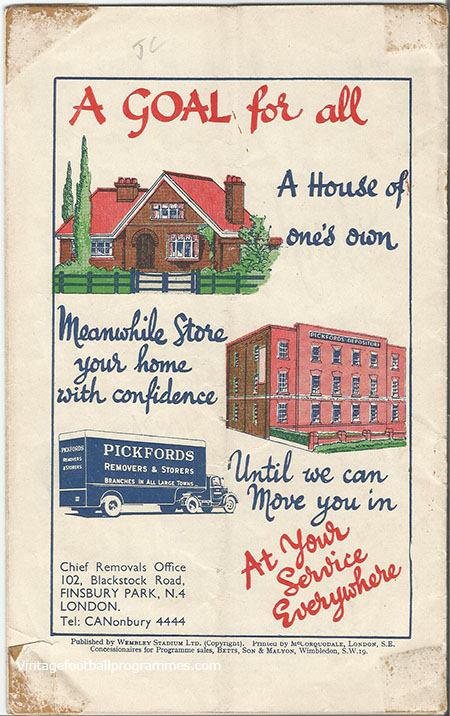 JC
A GOAL for all
A House of
one's own
Meanwhile Store
your home
with confidence
PICKFORDS DEPOSITORY
PICKFORDS
REMOVERS
& STORERS
PICKFORDS
REMOVERS & STORERS
BRANCHES IN ALL LARGE TOWNS
Until we can
Move you in
At Your
Service
Everywhere
Chief Removals Office
102, Blackstock Road,
FINSBURY PARK, N.4
LONDON.
Tel: CANonbury 4444
Published by WEMBLEY STADIUM LTD. (Copyright). Printed by McCORQUODALE, LONDON, S.E.
Concessionaires for Programme sales, BETTS, SON & MALYON, Wimbledon, S.W.19.
vintagefootballprogrammes.com